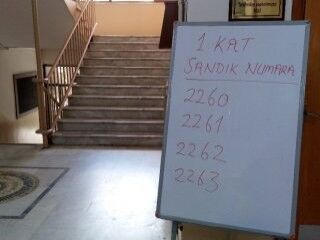 1 KAT
SANDIK NUMARA
2260
2261
2262
2263